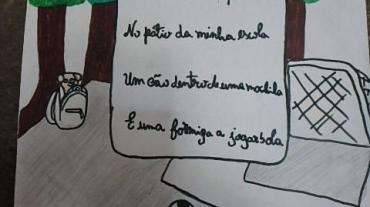 No pátio da minha escola
Um cão dentro de uma mochila
E uma formiga a jogar bola